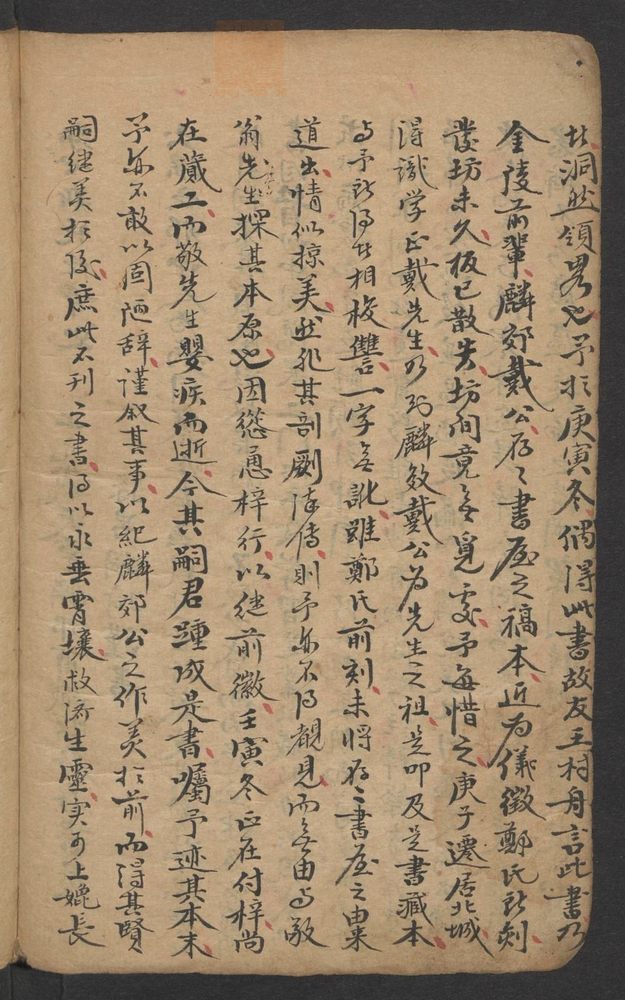 此洞然領畧也予於庚寅冬偶得此書故友王村舟言此書乃
金陵前輩麟郊戴公存々書屋之稿本近为儀徵鄭氏所刻
發坊未久板已散失坊间竟無覓處予每惜之庚子遷居北城
得識学正戴先生乃知麟效戴公为先生之祖是叩及是書藏本
与予所得甚相校讐一字無訛雖鄭氏前刻未将存々書屋之由来
道出情似掠美然非其剞劂流傳則予亦不得覩見而無由与敬
翁先生探其本原也因慫恿梓行以继前徽壬寅冬正在付梓尚
在蕆工而敬先生嬰疾而逝今其嗣君踵成是書囑予述其本末
予亦不敢以固陋辞謹叙其事以紀麟郊公之作美於前而得其賢
嗣继美於後庶此不刊之書得以永垂霄壤救济生靈实可上媲長